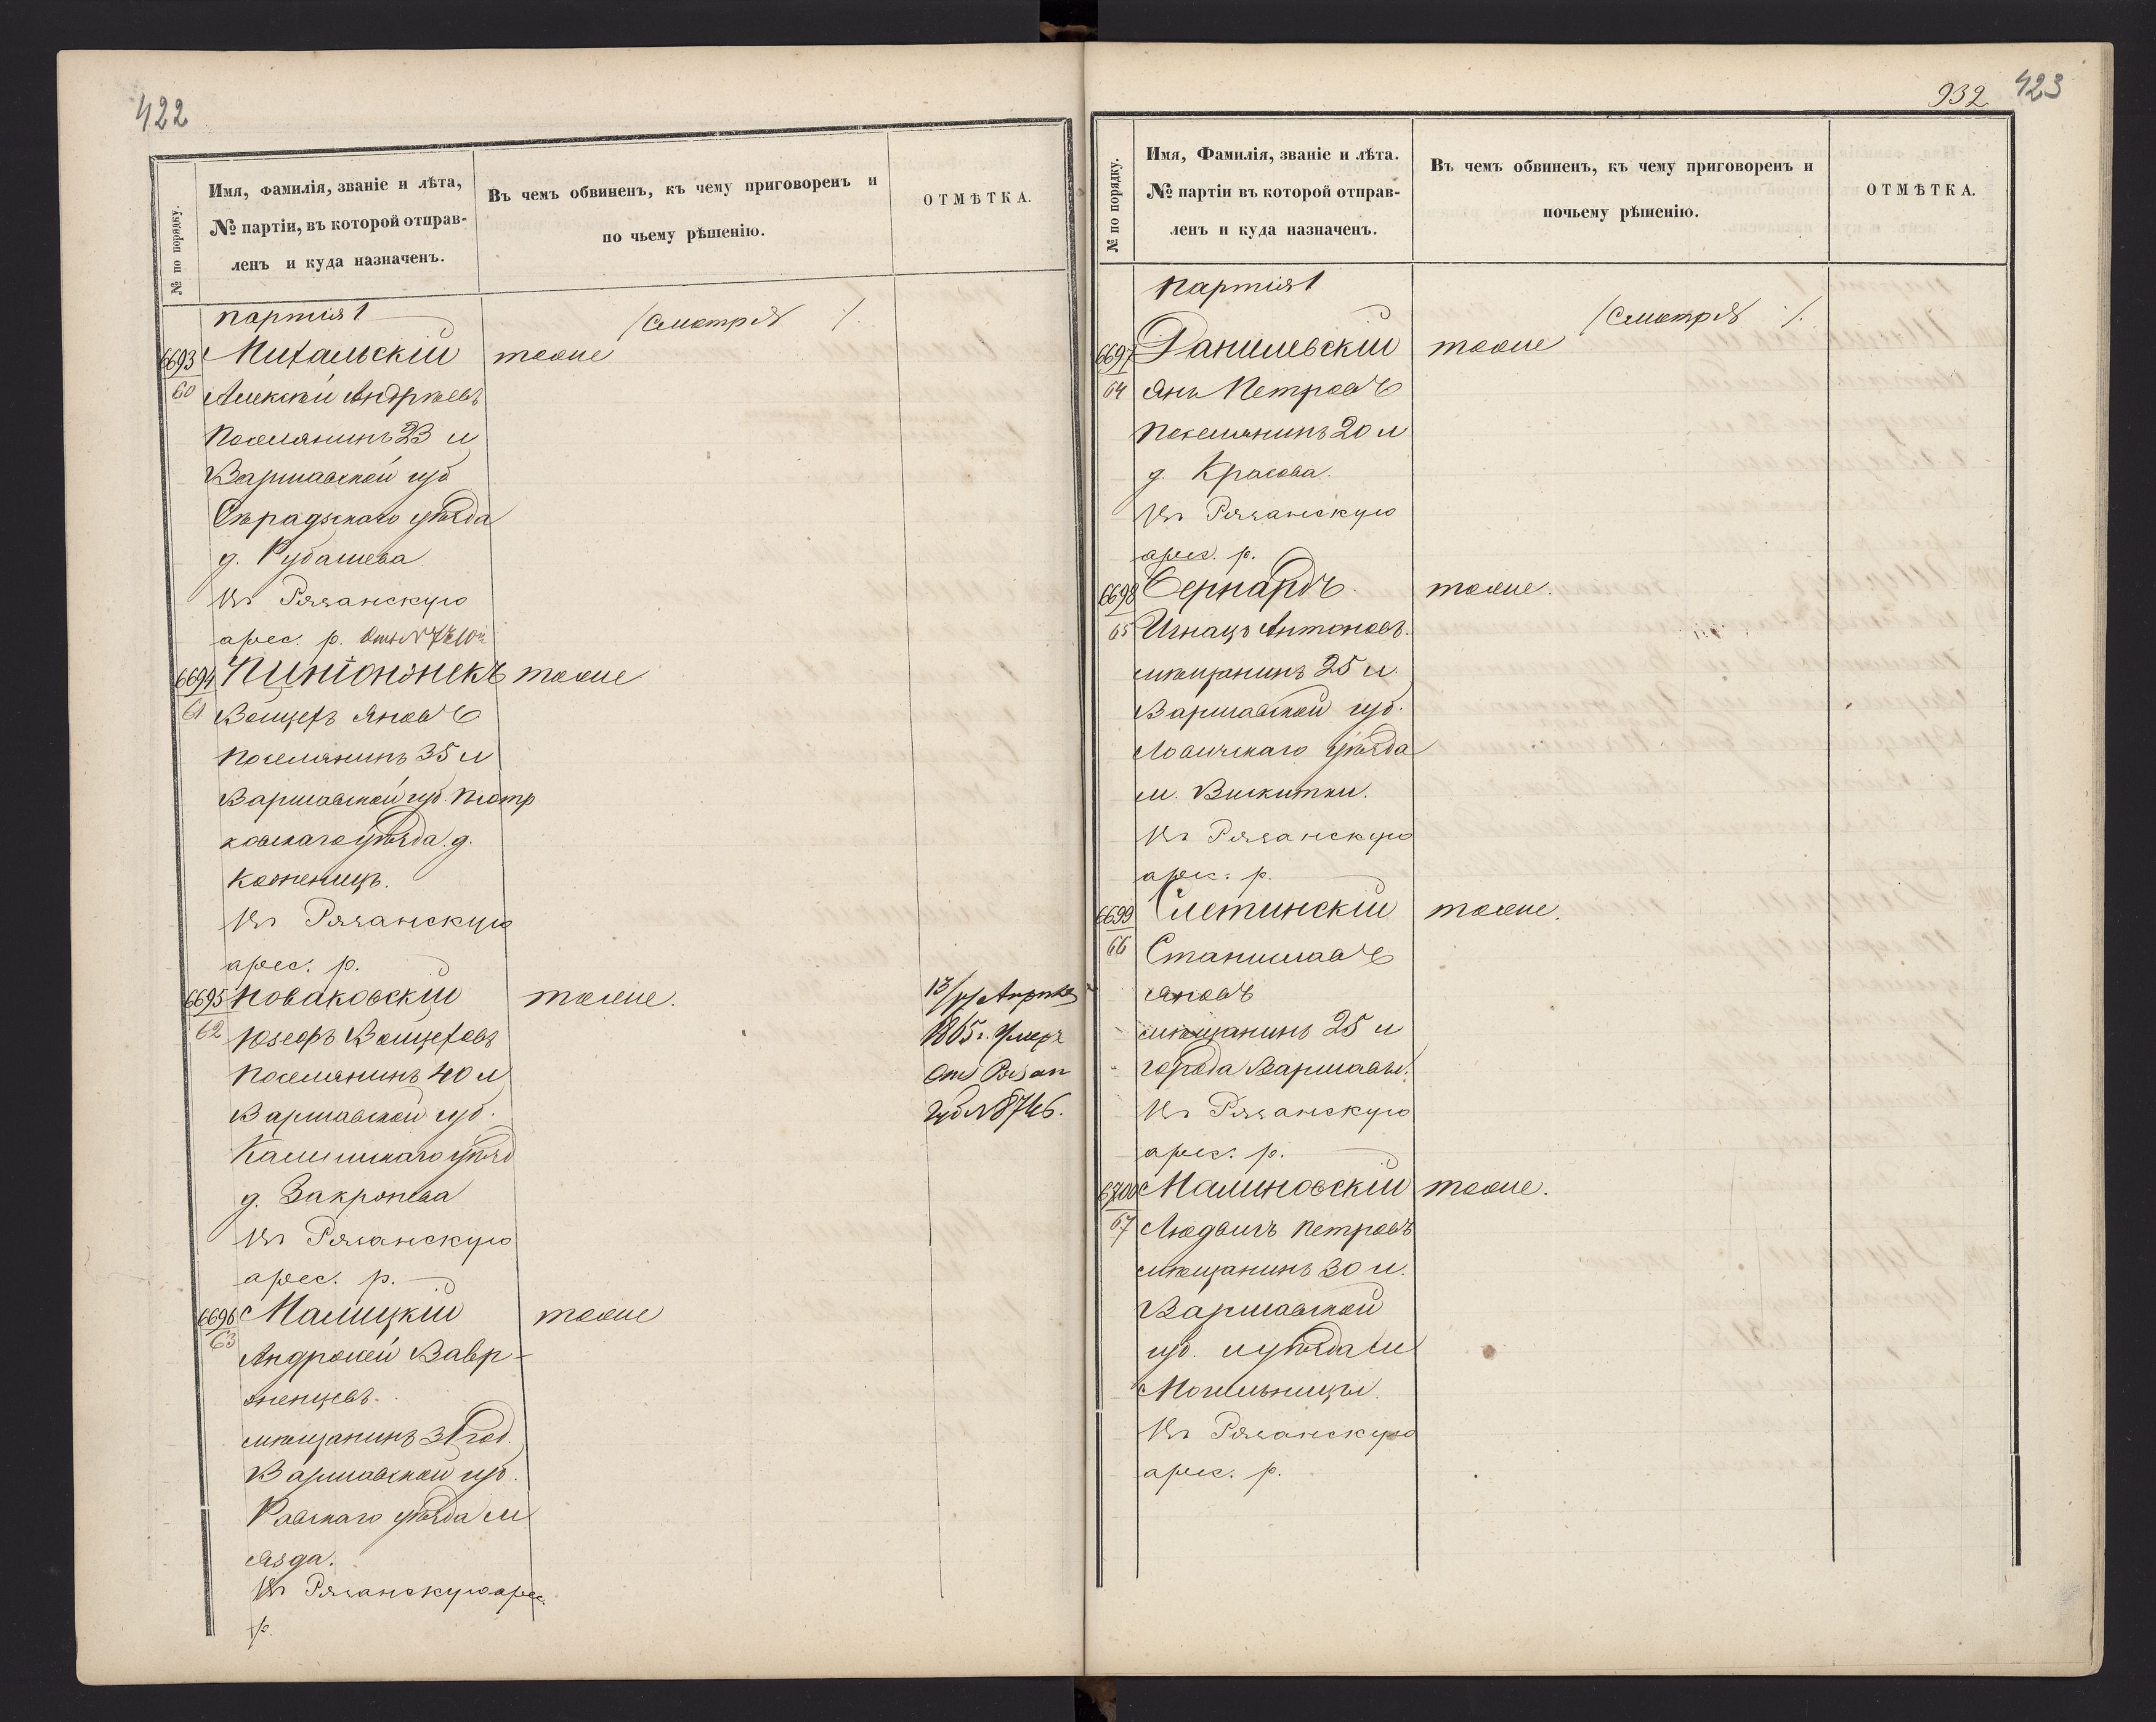 422
№ по порядку.
Имя, фамилія, званіе и лѣта,
№ партіи, въ которой отправ-
ленъ и куда назначенъ.
Въ чемъ обвиненъ, къ чему приговоренъ и
по чьему рѣшенію.
ОТМѢТКА.
партія 1
/Смотря /.
6693
60
Михальскій
тоже
Алексѣй Андрѣевъ
Поселянинъ 23 л
Варшавской губ
Сѣрадзскаго уѣзда
д. Рубашева
Въ Рязанскую
арес. р.
6694
61
тоже
Войцехъ Яновъ
Поселянинъ 35 л
Варшавской губ. Піотр
ковскаго уѣзда. д.
Коженицъ.
Въ Рязанскую
арес. р.
6695
62
Новаковскій
тоже.
Юзефъ Войцеховъ
Поселянинъ 40 л
Варшавской губ.
Калишскаго уѣзд
д. Закронева
Въ Рязанскую
арес. р.
13/ Апрѣля
1865 г. Умеръ
Отн Рязан
Губ № 8746.
6696
63
Малицкій
тоже
Андржей Вавр-
женцевъ.
мѣщанинъ 31 год.
Варшавской губ.
Равскаго уѣзда м
Язда.
Въ Рязанскую арес.
р.
932
423
№ по порядку.
Имя, Фамилія, званіе и лѣта.
№ партіи въ которой отправ-
ленъ и куда назначенъ.
Въ чемъ обвиненъ, къ чему приговоренъ и
почьему рѣшенію.
ОТМѢТКА.
партія 1
/Смотря /.
6697
64
Данилевскій
тоже
Янъ Петровъ
Поселянинъ 20 л
д. Красова.
Въ Рязанскую
арес. р.
6698
65
Бернардъ.
тоже.
Игнацъ Антоновъ.
мѣщанинъ 25 л.
Варшавской губ.
Ловичскаго уѣзда
м. Вискитки.
Въ Рязанскую
арес. р.
6699
66
тоже.
Станиславъ
Яновъ
мѣщанинъ 25 л
города Варшавы.
Въ Рязанскую
арес. р.
6700
67
Малиновскій
тоже.
Людвигъ Петровъ
мѣщанинъ 30 л.
Варшавской
губ. и уѣзда м
Могильницы.
Въ Рязанскую
арес. р.